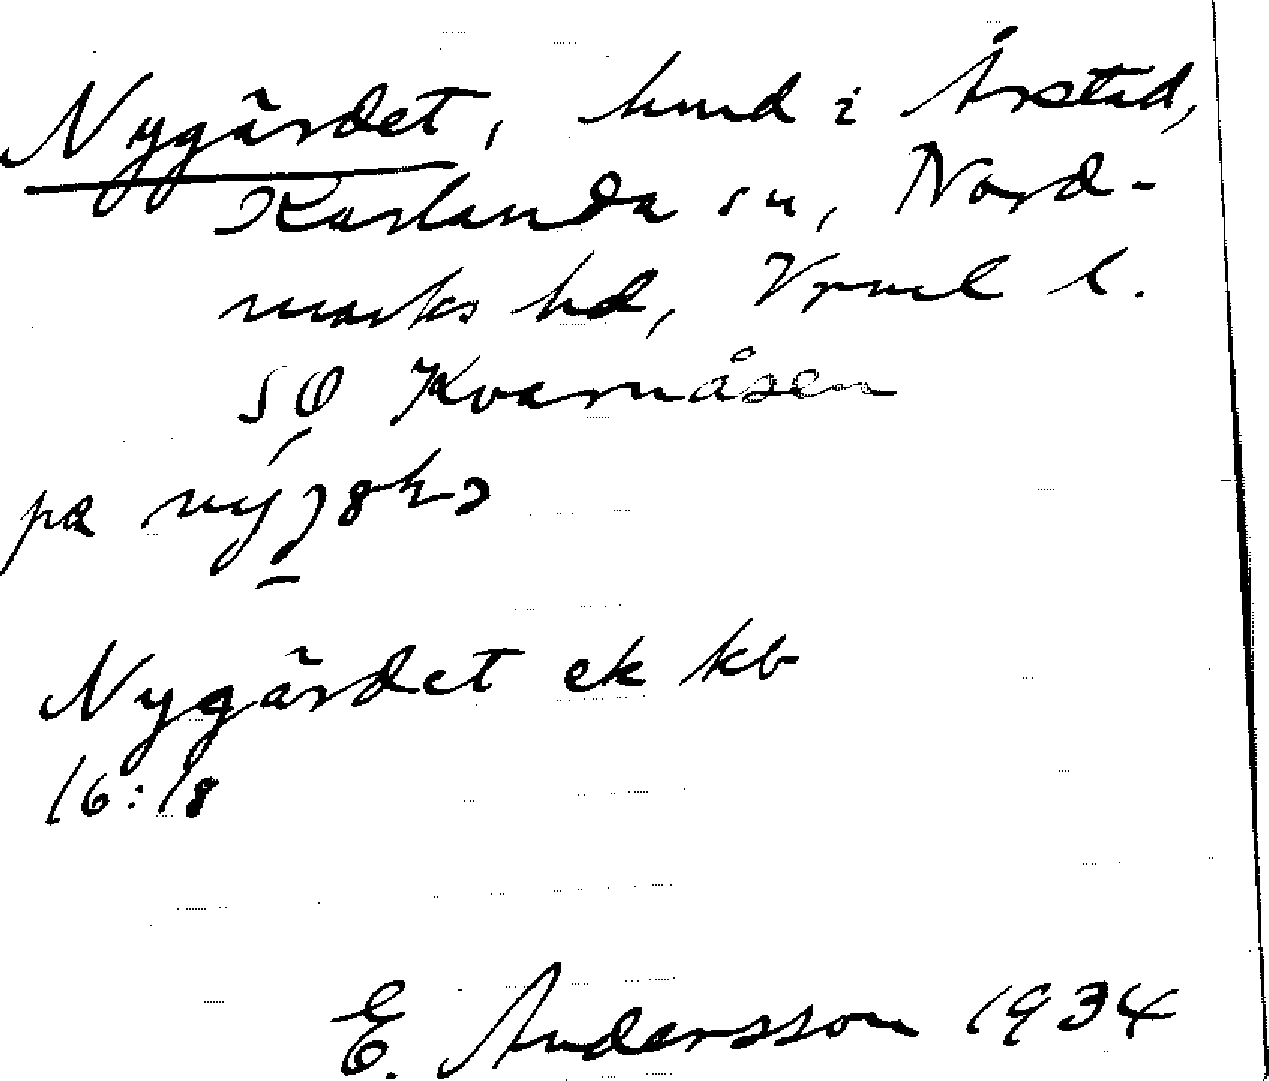 Nygärdet, hmd i Årstad,
Karlanda sn, Nord-
marks hd, Vrml l.
SO Kvarnåsen
på
Nygärdet ek kb
16:18
E. Andersson 1934